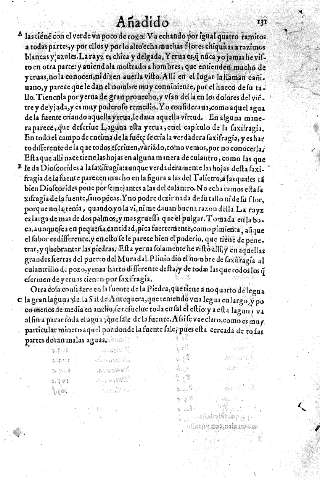 Añadido 131
A las tiene con el verde vn poco de roxo. Va echando por igual quatro ramitos
a todas partes, y por ellos y por lo alto echa muchas flores chiquitas a razimos
blancas y azules. La rayz es chica y delgada, Yerua es, q̃ nũca yo jamas he vis-
to en otra parte: y auiendola mostrado a hombres, que entienden mucho de
yeruas, no la conocen, ni dizen auerla visto. Alli en el lugar la llaman cañi-
uano, y parece que le dan el nombre muy conuiniente, por el hueco de su ta-
llo. Tienenla por yerua de gran prouecho, y vsan della en los dolores del viẽ-
tre y de yjada, y es muy poderoso remedio. Yo considerara, como aquel agua
de la fuente criando aquella yerua, le daua aquella virtud. En alguna manera
parece, que descriue Laguna esta yerua, en el capitulo de la saxifragia.
En todo el campo de encima de la fuẽte se cria la verdadera saxifragia, y es har
to differente de la que todos escriuen, variãdo, como vemos, por no conocerla,
Esta que alli nace tiene las hojas en alguna manera de culantro, como las que
B le da Dioscorides a la saxifragia: aunque verdaderamente las hojas desta saxi-
fragia de la fuente parecen mucho en la figura a las del Talictro, a las quales tã
bien Dioscorides pone por semejantes a las del culantro. No echa ramos esta sa
xifragia de la fuente, sino peços. Yo no podre dezir nada de su tallo ni de su flor,
porque no la tenia, quando yo la vi, ni me dauan buena razon della La rayz
es larga de mas de dos palmos, y mas gruessa que el pulgar. Tomada en la bo-
ca, aunque sea en pequeña cantidad, pica fuertemente, como pimienta, aũque
el sabor es differente, y en ello se le parece bien el poderio, que tiene de pene-
trar, y quebrantar las piedras. Esta yerua solamente he visto alli, y en aquellas
grandes sierras del puerto del Muradal. Plinio dio el nombre de saxifragia al
culantrillo de pozo, yerua harto differente desta, y de todas las que todos los q̃
escriuen de yeruas tienen por saxifragia.
Otra cosa considero en la fuente de la Piedra, que tiene a no quarto de legua
C la gran laguna de la Sal de Antequera, que teniendo vna legua en largo, y po
co menos de media en ancho, se resuelue toda en sal el estio, y a esta laguna va
ol fin a parar toda el agua, que sale de la fuente. Assi se vee claro, como es muy
particular minero aquel por donde la fuente sale, pues esta cercada de todas
partes de tan malas aguas.